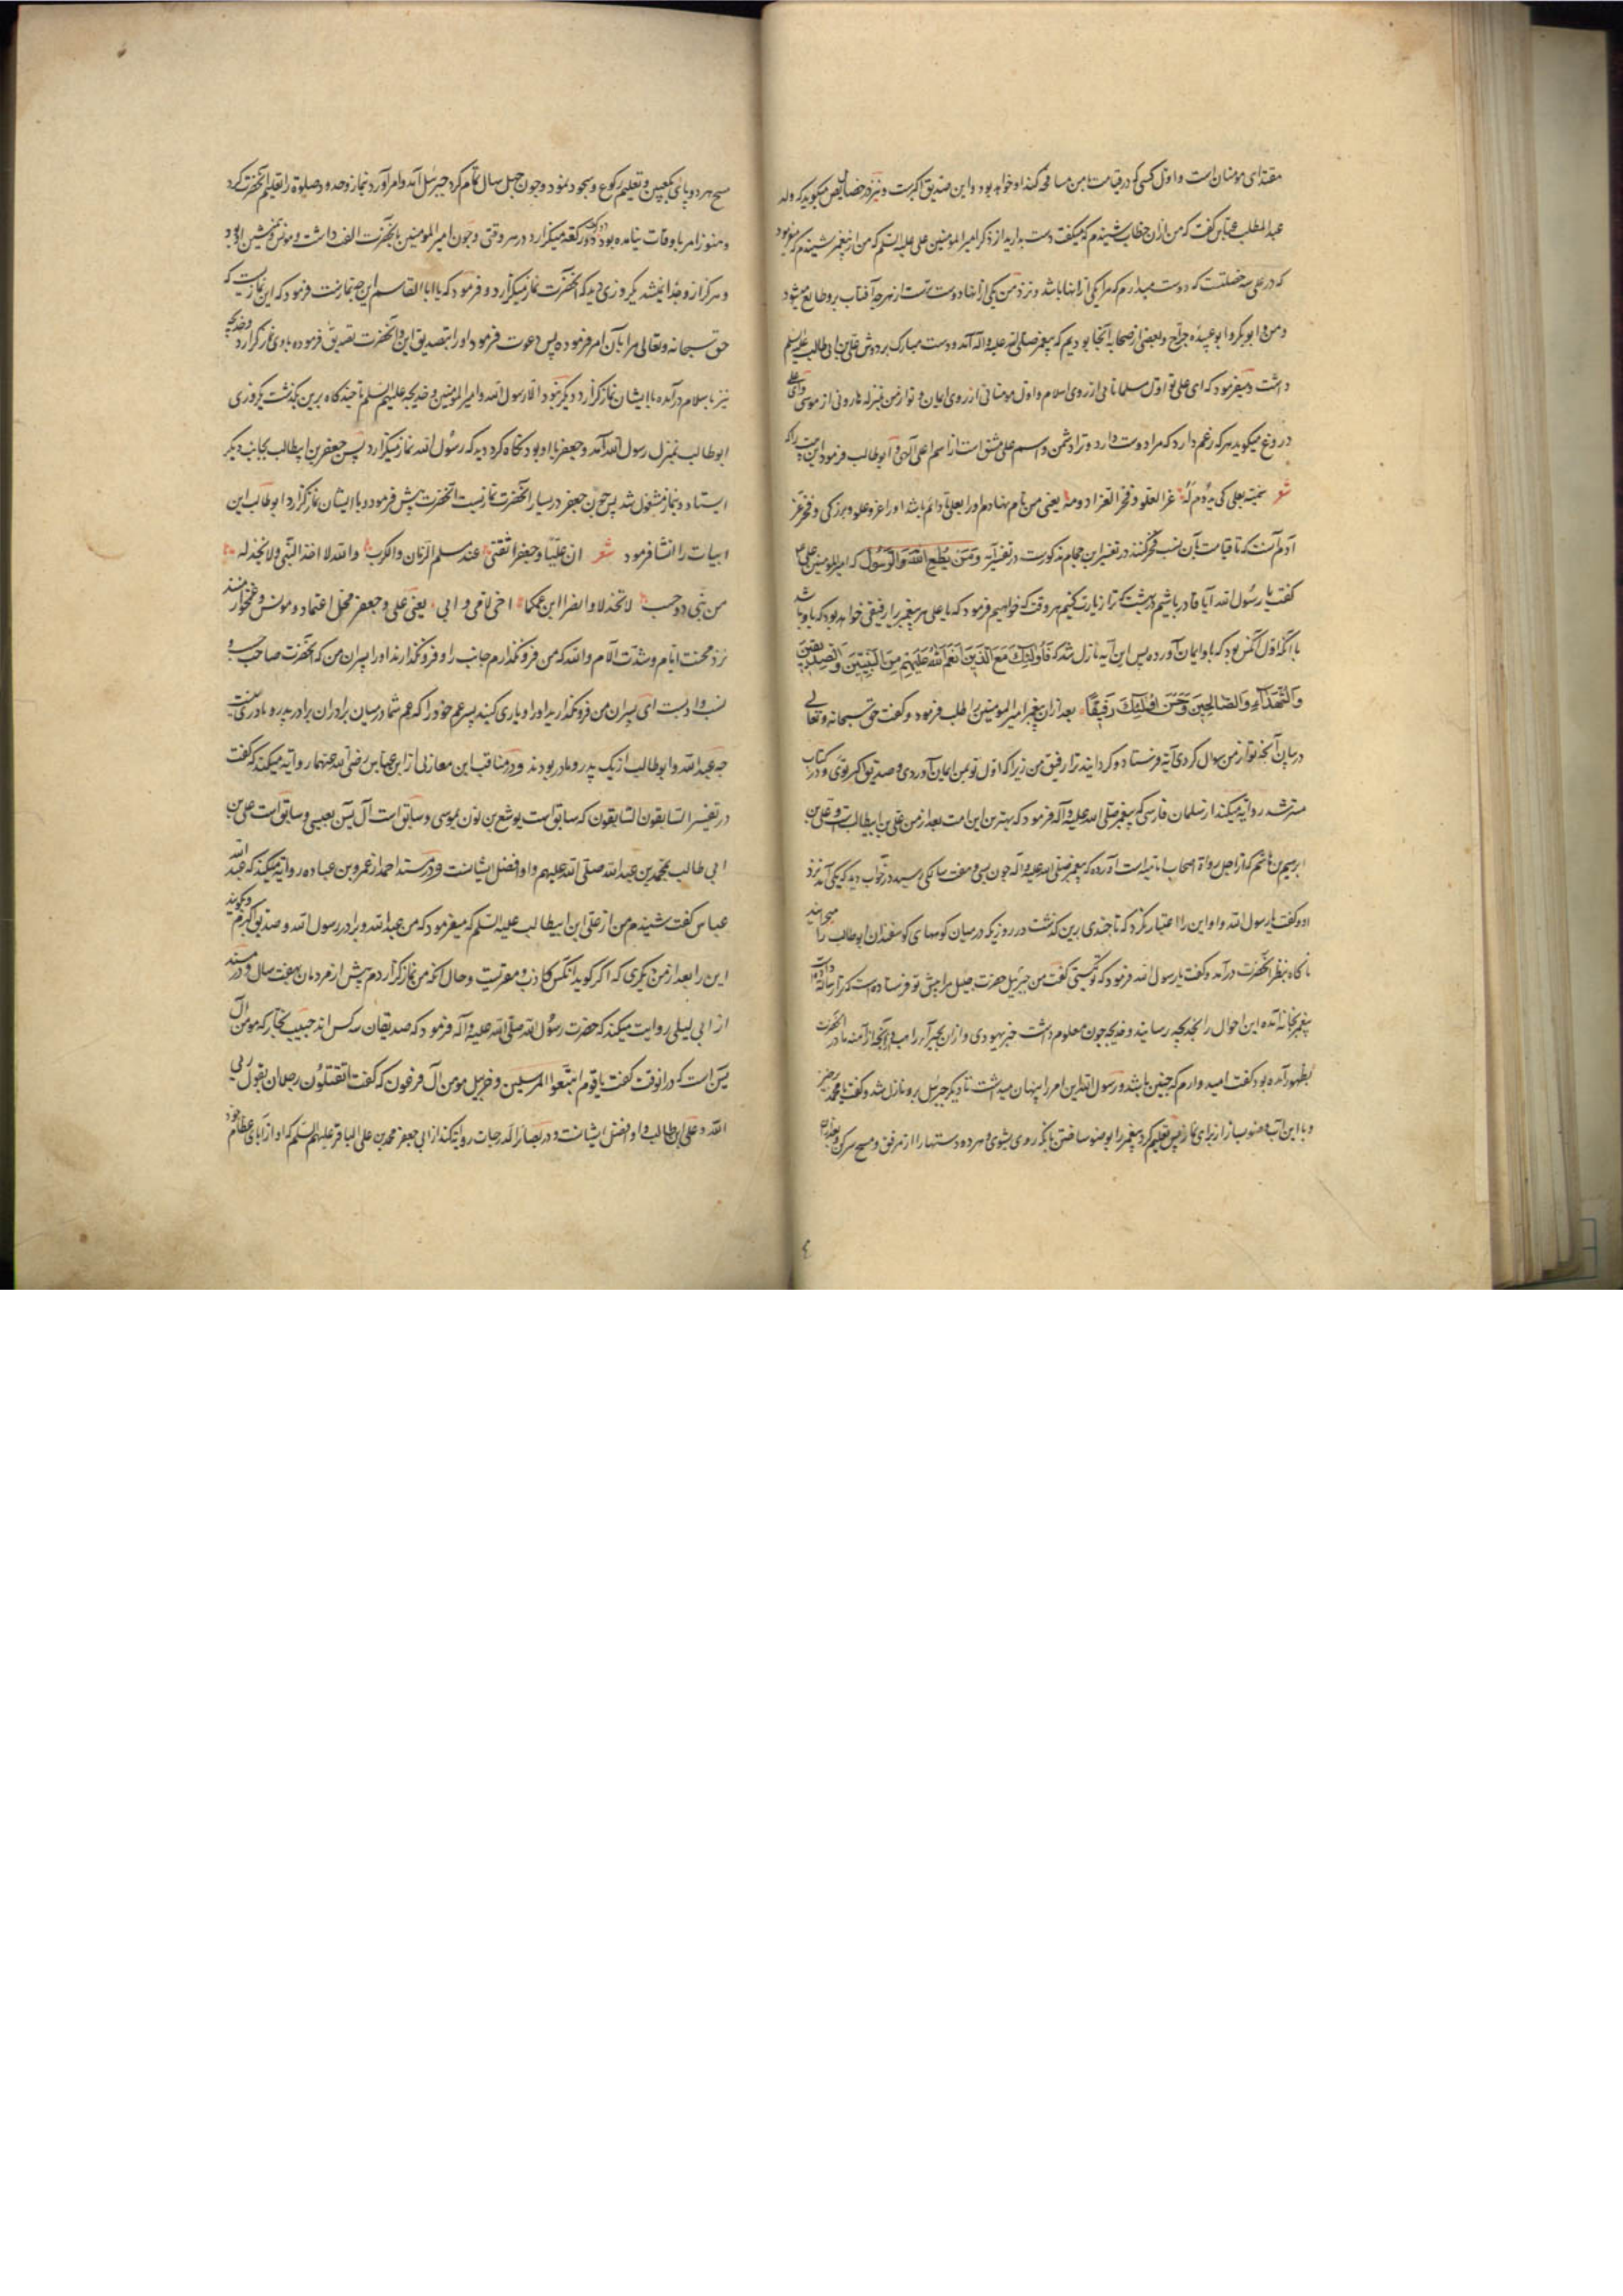 مقتدای مومنان است و اول کسی که در قیامت با من مصافحه کند او خواهد بود و این صدیق اکبرست و نیز در خصایص میکوید که ولد
عبد المطلب عباس کفت که من از ابن خطاب شنیدم که میکفت دست بدارید از ذکر امیر المومنین علی علیه السلم که من از پیغمبر شنیدم که میفرمود
که در علی سه خصلتست که دوست میدارم که مرا یکی از انها باشد و نزد من یکی از انها دوست تست از هر چه آفتاب برو طالع میشود
و من و ابو بکر و ابو عبیده جراح و بعضی از صحابه آنجا بودیم که پیغمبر صلی الله علیه و اله آمد و دست مبارک بر دوش علی بن ابی طالب علیه السلم
داشت و میفرمود که ای علی تو اول مسلمانانی از روی اسلام و اول مومنانی از روی ایمان و تو از من بمنزله هارونی از موسی و ای علی
دروغ میکوید هر که زعم دارد که مرا دوست دارد و ترا دشمن و اسم علی مشتق است از اسم اعلی الهی و ابو طالب فرمود این بیت را که
شعر سمیته بعلی کی یدوم له عز العلو و فخر العز ادومه یعنی من نام نهادم او را بعلی تا دایم باشد او را عز و علو و بزرکی و فخر عز
ادوم آنست که تا قیامت بآن نسب فخر کنند در تفسیر ابن حجام مذکورست در تفسیر آیه وَمَن یُطِعِ اللهَ وَالرَّسُولَ که امیر المومنین علی ع
کفت یا رسول الله آیا قادر باشیم در بهشت که ترا زیارت کنیم هر وقت که خواهیم فرمود که یا علی هر پیغمبر را رفیقی خواهد بود که با او باشد
با آنکه اول کس بود که باو ایمان آورده پس این آیه نازل شد که فَأُولئِكَ مَعَ الَّذِینَ أَنعَمَ اللهُ عَلَیهِم مِنَ النَّبِیِّینَ وَالصِّدِّیقِینَ
وَالشُّهَدَاءِ وَالصَّالِحِینَ وَحَسُنَ أُولئِكَ رَفِیقًا بعد ازان پیغمبر امیر المومنین را طلب فرمود و کفت حق سبحانه و تعالی
در بیان آنچه تو از من سوال کردی آیه فرستاد و کردانید ترا رفیق من زیرا که اول تو بمن ایمان آوردی و صدیق اکبر توی و در کتاب
مسترشد روایه میکند از سلمان فارسی که پیغمبر صلی الله علیه و آله فرمود که بهترین این امت بعد از من علی بن ابیطالب است و علی بن
ابرهیم بن هاشم که از اجل رواة اصحاب امامیه است آورده که پیغمبر صلی الله علیه و اله چون بسی و هفت سالکی رسید در خواب دید که یکی آمد نزد
او و کفت یا رسول الله و او این را اعتبار نکرد که تا چندی برین کذشت در روزیکه در میان کوههای کوسفندان ابو طالب را میچرانید
ناکاه بنظر آنحضرت درآمد و کفت یا رسول الله فرمود که تو کیستی کفت من جبرئیل حضرت جلیل مرا پیش تو فرستاده است که ترا رسالة
پیغمبر بخانه آمده این احوال را بخدیجه رسانید و خدیجه چون معلوم داشت خبر یهودی و ازان بحیرا راهب و آنچه از آمنه مادر آنحضرت
بظهور آمده بود کفت امید وارم که چنین باشد و رسول الله این امر را پنهان میداشت تا دیکر جبرئیل برو نازل شد و کفت یا محمد برخیز
و با این آب وضو بساز از برای نماز پس تعلیم کرد پیغمبر را بوضو ساختن بانکه روی بشوی و هر دو دستها را از مرفق و مسح سر کن و بعد ازان
مسح هر دو پای تا کعبین و تعلیم رکوع و سجود نمود و چون چهل سال تمام کرد جبرئیل آمد و امر آورد بنماز و حدود صلوة را تعلیم آنحضرت کرد
و هنوز امر باوقات نیامده بود دو رکعه میکزارد در هر وقتی و چون امیر المومنین بآنحضرت الف داشت و مونس و همنشین او بود
و هرکز ازو جدا نمیشد یکروزی دید که آنحضرت نماز میکزارد و فرمود که یا ابا القاسم این چه نمازست فرمود که این نمازیست که
حق سبحانه و تعالی مرا بآن امر فرموده پس دعوت فرمود او را بتصدیق این و آنحضرت تصدیق فرموده باوی نماز کزارد و خدیجه
نیز باسلام درآمده با ایشان نماز کزارد و دیکر نبود الا رسول الله و امیر المومنین و خدیجه علیهم السلم تا چند کاه برین بکذشت یکروزی
ابو طالب بمنزل رسول الله آمد و جعفر با او بود نکاه کرد دید که رسول الله نماز میکزارد پس جعفر بن ابیطالب بجانب دیکر
ایستاد و بنماز مشغول شد پس چون جعفر در یسار آنحضرت بنماز بیست آنحضرت پیش فرمود و با ایشان نماز کزارد ابو طالب این
ابیات را انشا فرمود شعر ان علیّا و جعفرا ثقتی عند مسلم الزمان و الکرب و الله لا اخذ النبی و لا یخذله
من بنی ذو حسب لا تخذلا و انصرا ابن عمکما اخی لامی و ابی یعنی علی و جعفر محل اعتماد و مونس و غمخوار منند
نزد محنت ایام و شدت آلام و الله که من فرو نکذارم جانب را و فرو نکذارند او را پسران من که آنحضرت صاحب حسب و
نسب و ادبست ای پسران من فرو نکذارید او را و یاری کنید پسر عم خود را که عم شما در میان برادران برادر پدر و مادری منست
چه عبد الله و ابو طالب از یک پدر و مادر بودند و در مناقب ابن مغازلی از ابن عباس رضی الله عنهما روایه میکند که کفت
در تفسیر السابقون السابقون که سابق است یوشع بن نون بموسی و سابق است آل یس بعیسی و سابق است علی بن
ابی طالب بمحمد بن عبد الله صلی الله علیهم و او افضل ایشانست و در مسند احمد از عمرو بن عباده روایه میکند که عبد الله
عباس کفت شنیدم من از علی ابن ابیطالب علیه السلم که میفرمود که من عبد الله و برادر رسول الله و صدیق اکبرم و نکوید
این را بعد از من دیکری که اکر کوید آنکس کاذب و مفتریست و حال آنکه من نماز کزاردم پیش از مردمان بهفت سال و در مسند
از ابی لیلی روایت میکند که حضرت رسول الله صلی الله علیه و آله فرمود که صدیقان سه کس اند حبیب نجار که مومن آل
یس است که درانوقت کفت یا قوم اتبعوا المرسلین و خربیل مومن آل فرعون که کفت اتقتلون رجلا ان یقول ربی
الله و علی ابن ابی طالب و او افضل ایشانست و در بصائر الدرجات روایه کند از ابی جعفر محمد بن علی الباقر علیهم السلم که او از آبای عظام خود